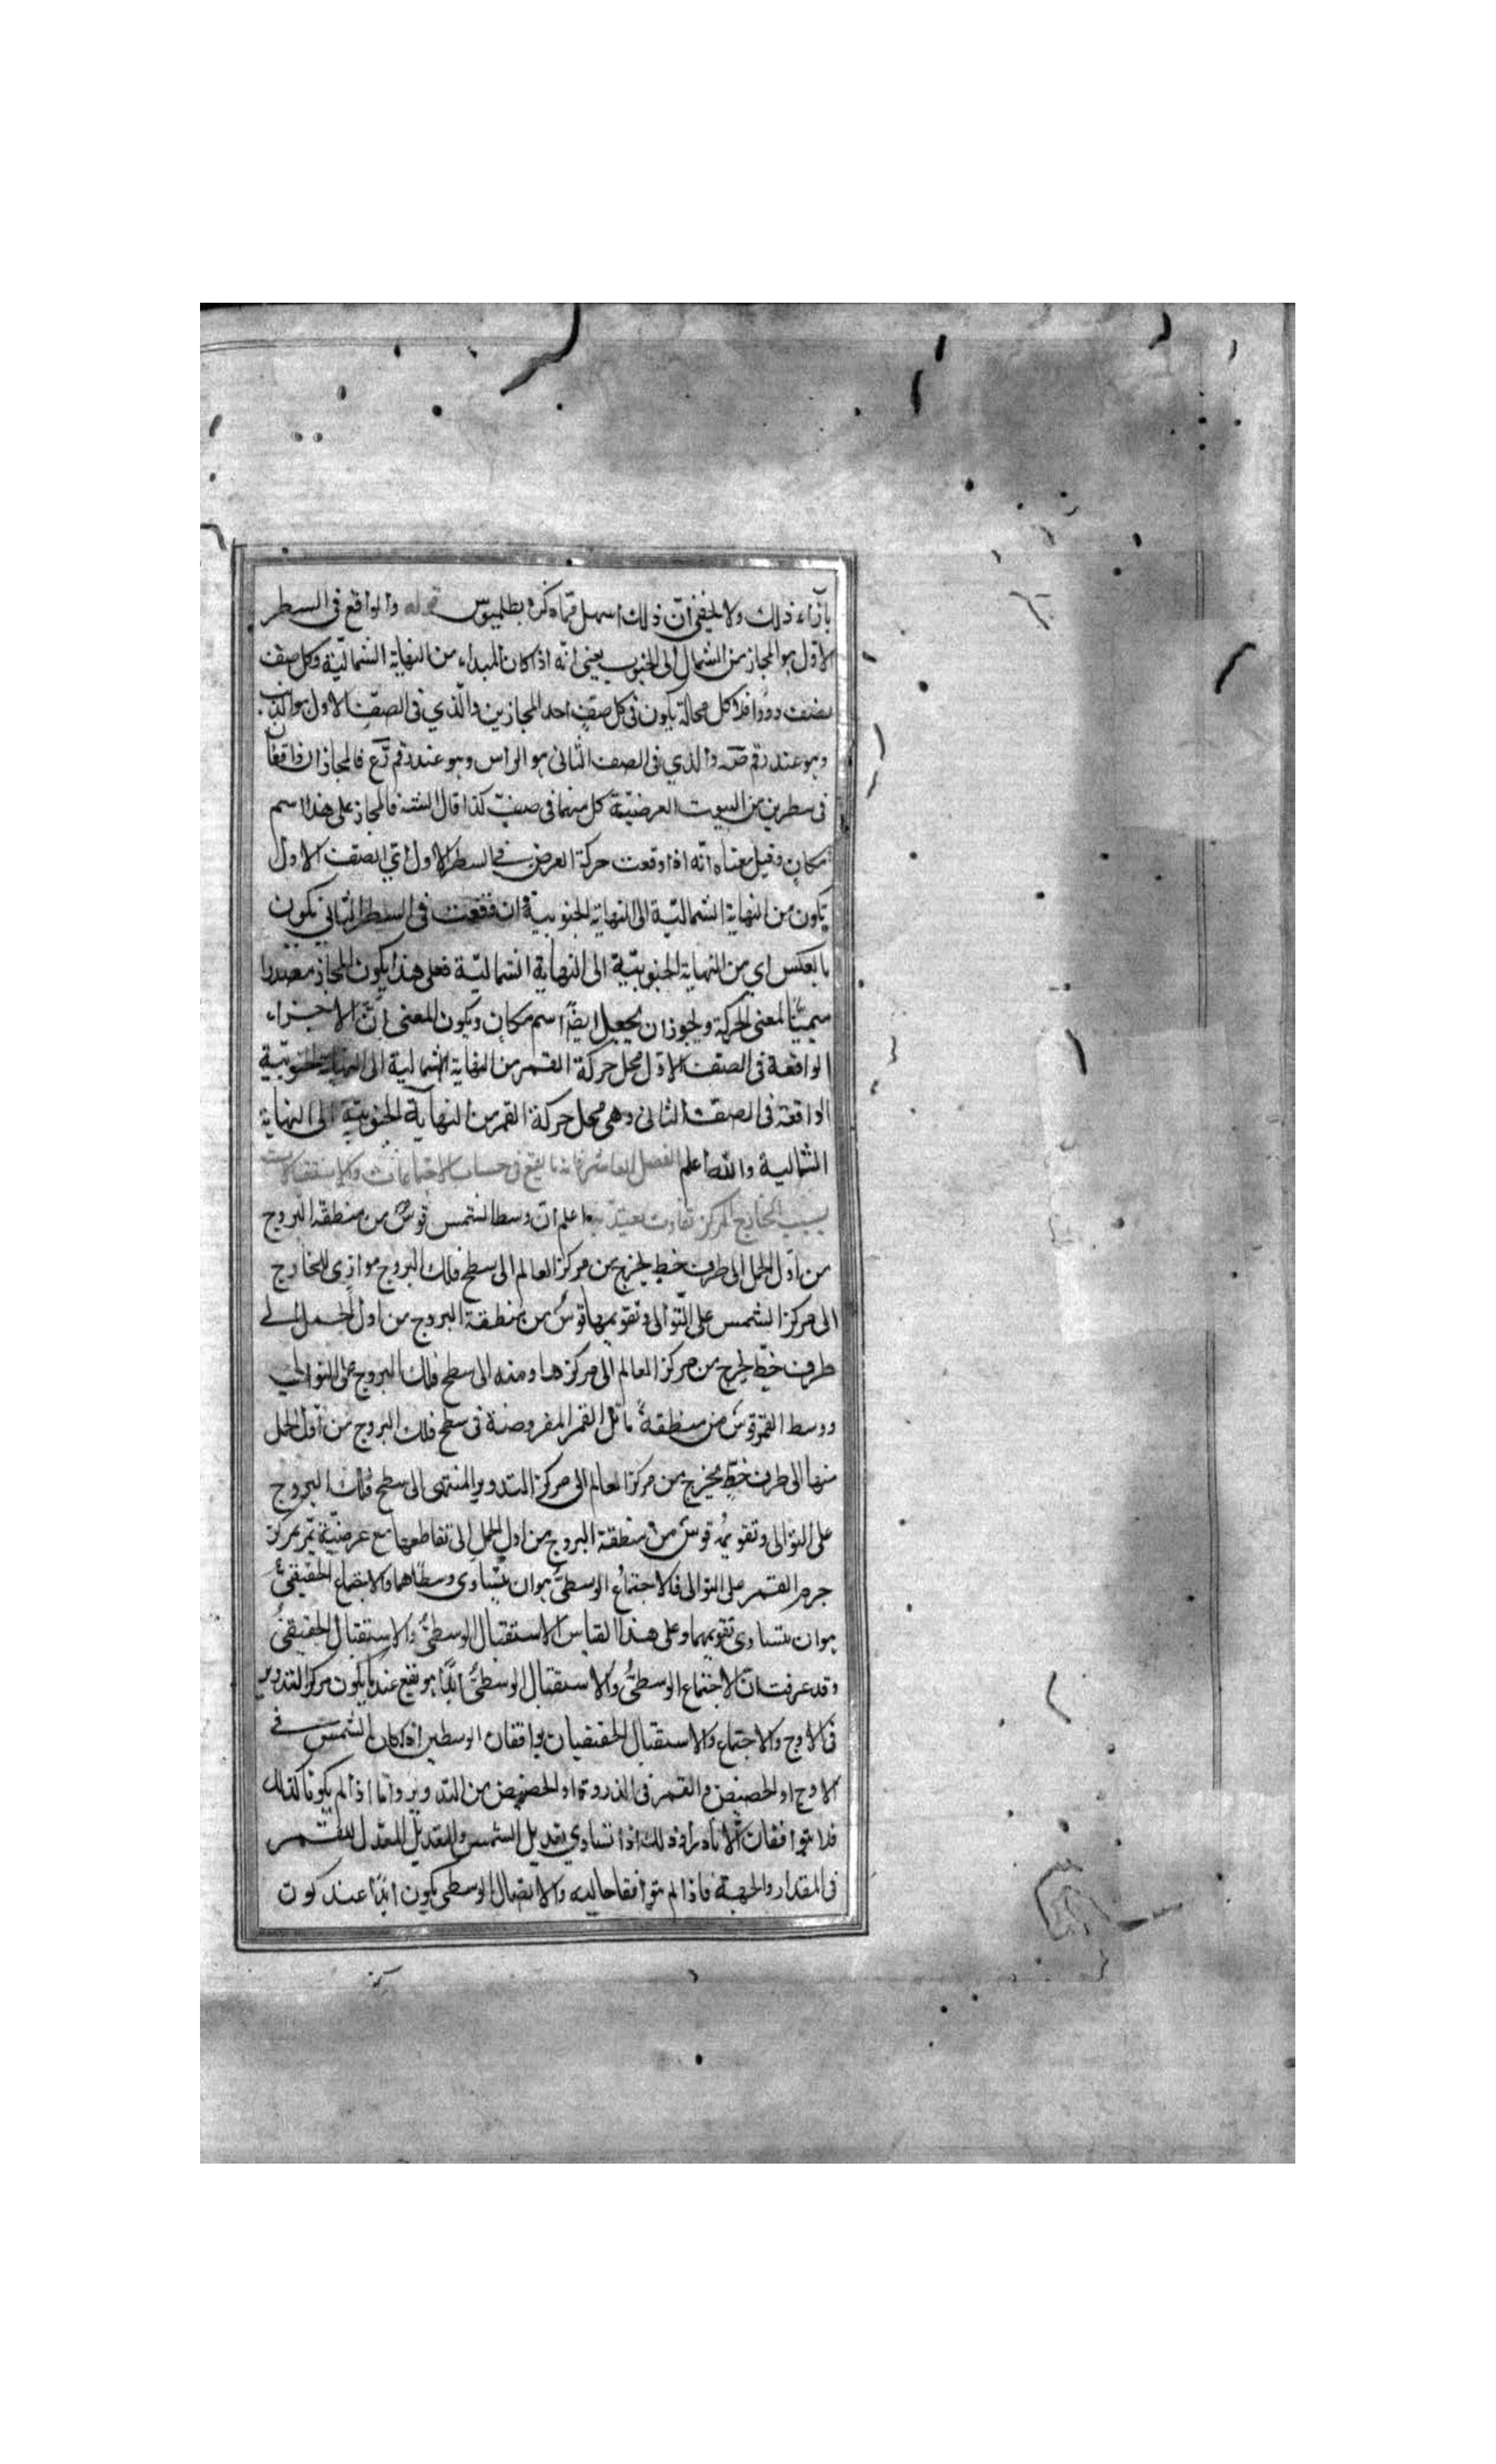 بازاء ذلك ولا يخفى انّ ذلك اسهل ممّا ذكره بطلميوس قوله والواقع فى السطر
الاوّل هو المجاز من الشمال الى الجنوب يعنى انه اذا كان المبداء من النهاية الشماليّة وكل صف
نصف دور فلا محالة يكون فى كل صف احد المجازين والّذي فى الصف الاول هو الذنب
وهو عند رقم ص والذي فى الصف الثانى هو الراس وهو عند رقم رع فالمجازان واقعان
فى سطرين من البيوت العرضيّة كل منهما فى صف كذا قال فالمجاز على هذا اسم
مكان وقيل معناه انّه اذا وقعت حركة العرض فى السطر الاول اي الصف الاول
يكون من النهاية الشماليّة الى النهاية الجنوبية وان وقعت فى السطر الثانى يكون
بالعكس اي من النهاية الجنوبيّة الى النهاية الشماليّة فعلى هذا يكون المجاز مصدرا
ميميّا لمعنى الحركة ويجوز ان يجعل ايضًا اسم مكان ويكون المعنى انّ الاجزاء
الواقعة فى الصف الاوّل محل حركة القمر من النهاية الشمالية الى النهاية الجنوبيّة
الواقعة فى الصف الثانى وهى محل حركة القمر من النهاية الجنوبيّة الى النهاية
الشمالية والله اعلم الفصل العاشر فى حساب الاجتماعات والاستقبالات
بسبب الخارج المركز تفاوت يعتدّ به اعلم ان وسط الشمس قوسٌ من منطقة البروج
من اوّل الحمل الى طرف خط يخرج من مركز العالم الى سطح فلك البروج موازى للخارج
الى مركز الشمس على التوالى وتقويمها قوسٌ من منطقة البروج من اول الحمل الى
طرف خطّ يخرج من مركز العالم الى مركزها ومنه الى سطح فلك البروج على التوالى
ووسط القمر قوس من منطقة مائل القمر المفروضة فى سطح فلك البروج من اوّل الحمل
منها الى طرف خطّ يخرج من مركز العالم الى مركز التدوير المنتهى الى سطح فلك البروج
على التوالى وتقويمُه قوسٌ من منطقة البروج من اول الحمل الى تقاطعها مع عرضيّة تمرّ بمركز
جرم القمر على التوالى فالاجتماعُ الوسطىُّ هو ان يتساوى وسطاهما والاجتماع الحقيقىُّ
هو ان يتساوى تقويمهما وعلى هذا القياس الاستقبال الوسطىُّ والاستقبال الحقيقىُّ
وقد عرفت انّ الاجتماع الوسطىُّ والاستقبال الوسطىُّ ابدًا هو يقع عند ما يكون مركز التدوير
فى الاوج والاجتماع والاستقبال الحقيقيان يوافقان الوسطيين اذا كان الشمس فى
الاوج او الحضيض والقمر فى الذروة او الحضيض من التدوير وامّا اذا لم يكونا كذلك
فلا يتوافقان الّا نادرا وذلك اذا تساوي تعديل الشمس والتعديل المعدل للقمر
فى المقدار والجهة فاذا لم يتوافقا والاتصال الوسطى يكون ابدًا عند كون